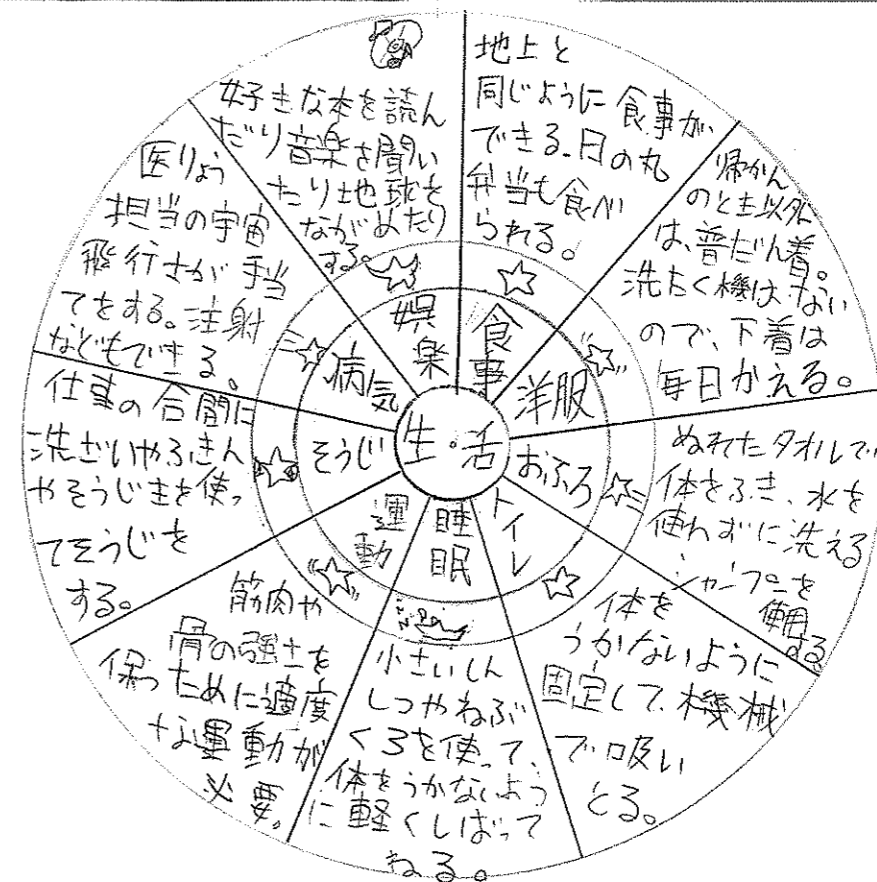 生活
食事
地上と
同じように食事が
できる。日の丸
弁当も食べ
られる。
洋服
帰かん
のとき以外
は、普だん着。
洗たく機はない
ので、下着は
毎日かえる。
おふろ
ぬれたタオルで
体をふき、水を
使わずに洗える
シャンプーを
使用
する。
トイレ
体を
うかないように
固定して、機械
で吸い
とる。
睡眠
小さいしん
しつやねぶ
くろを使って、
体をうかないよう
に軽くしばって
ねる。
運動
筋肉や
骨の強さを
保つために適度
な運動が
必要。
そうじ
仕事の合間に
洗ざいやふきん
やそうじきを使っ
てそうじを
する。
病気
医りょう
担当の宇宙
飛行士が手当
てをする。注射
などもできる。
娯楽
好きな本を読ん
だり音楽を聞い
たり地球を
ながめたり
する。